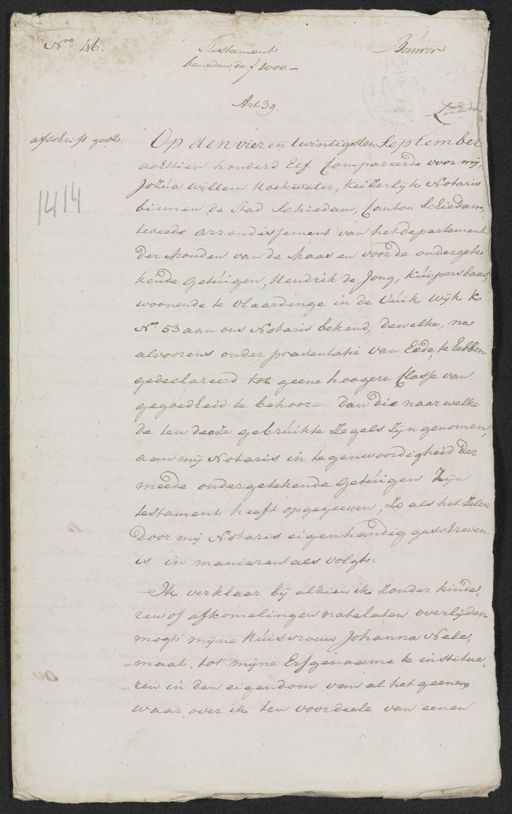 Noo 46.
Testament
beneden de f 1000 –
Art 39.
afschrift gest.
1414
Op den vier en twintigsten September
achttien honderd Elf Compareerde voor mij
Jozua Willem Hoekwater, Keizerlijk Notaris
binnen de Stad Schiedam, Canton Schiedam,
tweede arrondissement van het departement
der Monden van de Maas en voor de onderget
kende Getuigen, Hendrik de Jong, Kuipersbaas,
woonende te Vlaardinge in de wijk K
No 53 aan ons Notaris bekend, dewelke, na
alvoorens onder praesentatie van Eede te hebben
gedeclareerd tot geene hoogere Classe van
gegoedheid te behooren dan die naar welke
de ten deeze gebruikte Zegels zijn genomen,
aan mij Notaris in tegenwoordigheid der
meede ondergetekende Getuigen zijn
testament heeft opgegeeven, zo als het zelve
door mij Notaris eigenhandig geschreven
is in manieren als volgt.
Ik verklaar bij aldien ik zonder kinde
ren of afkomelingen natelaten overlijden
mogt mijne Huisvrouw Johanna Nele
maat, tot mijne Erfgenaame te institue
ren in den eigendom van al het geene
waar over ik ten voordeele van eenen